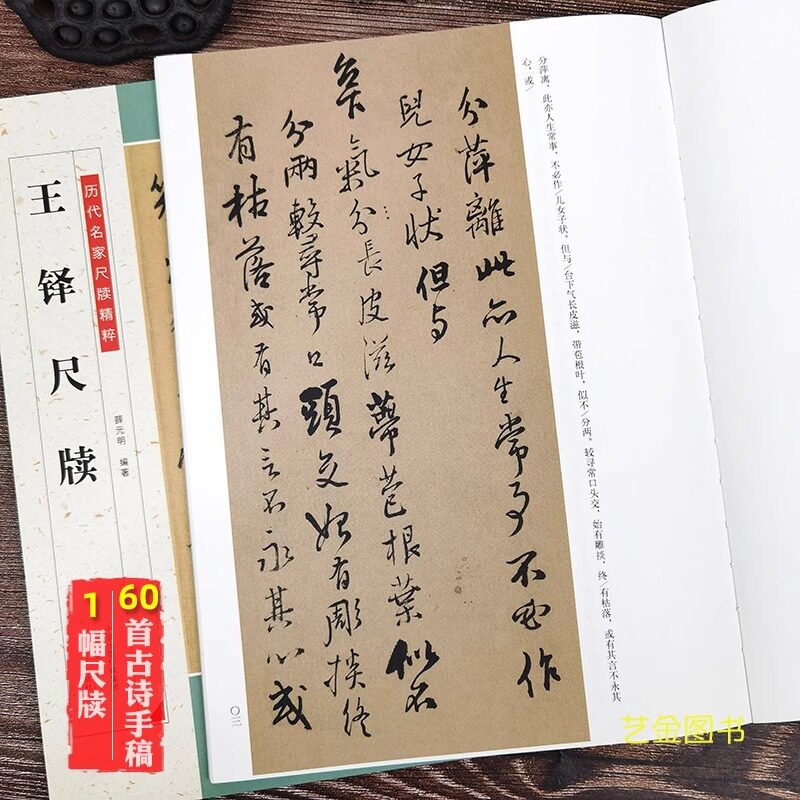 历代名家尺牍精粹
王铎尺牍
薛元明 编著
分萍離此亦人生常事不必作
兒女子状但与
台下氣分長皮滋蔕苞根葉似不
分兩較尋常口頭交始有彫掞終
有枯落或有其言不永其心或
分萍离，此亦人生常事，不必作/儿女子状，但与/台下气长皮滋，带苞根叶，似不/分两。较寻常口头交，始有雕掞，终/有枯落，或有其言不永其
心，或/
60首古诗手稿
1幅尺牍
艺金图书